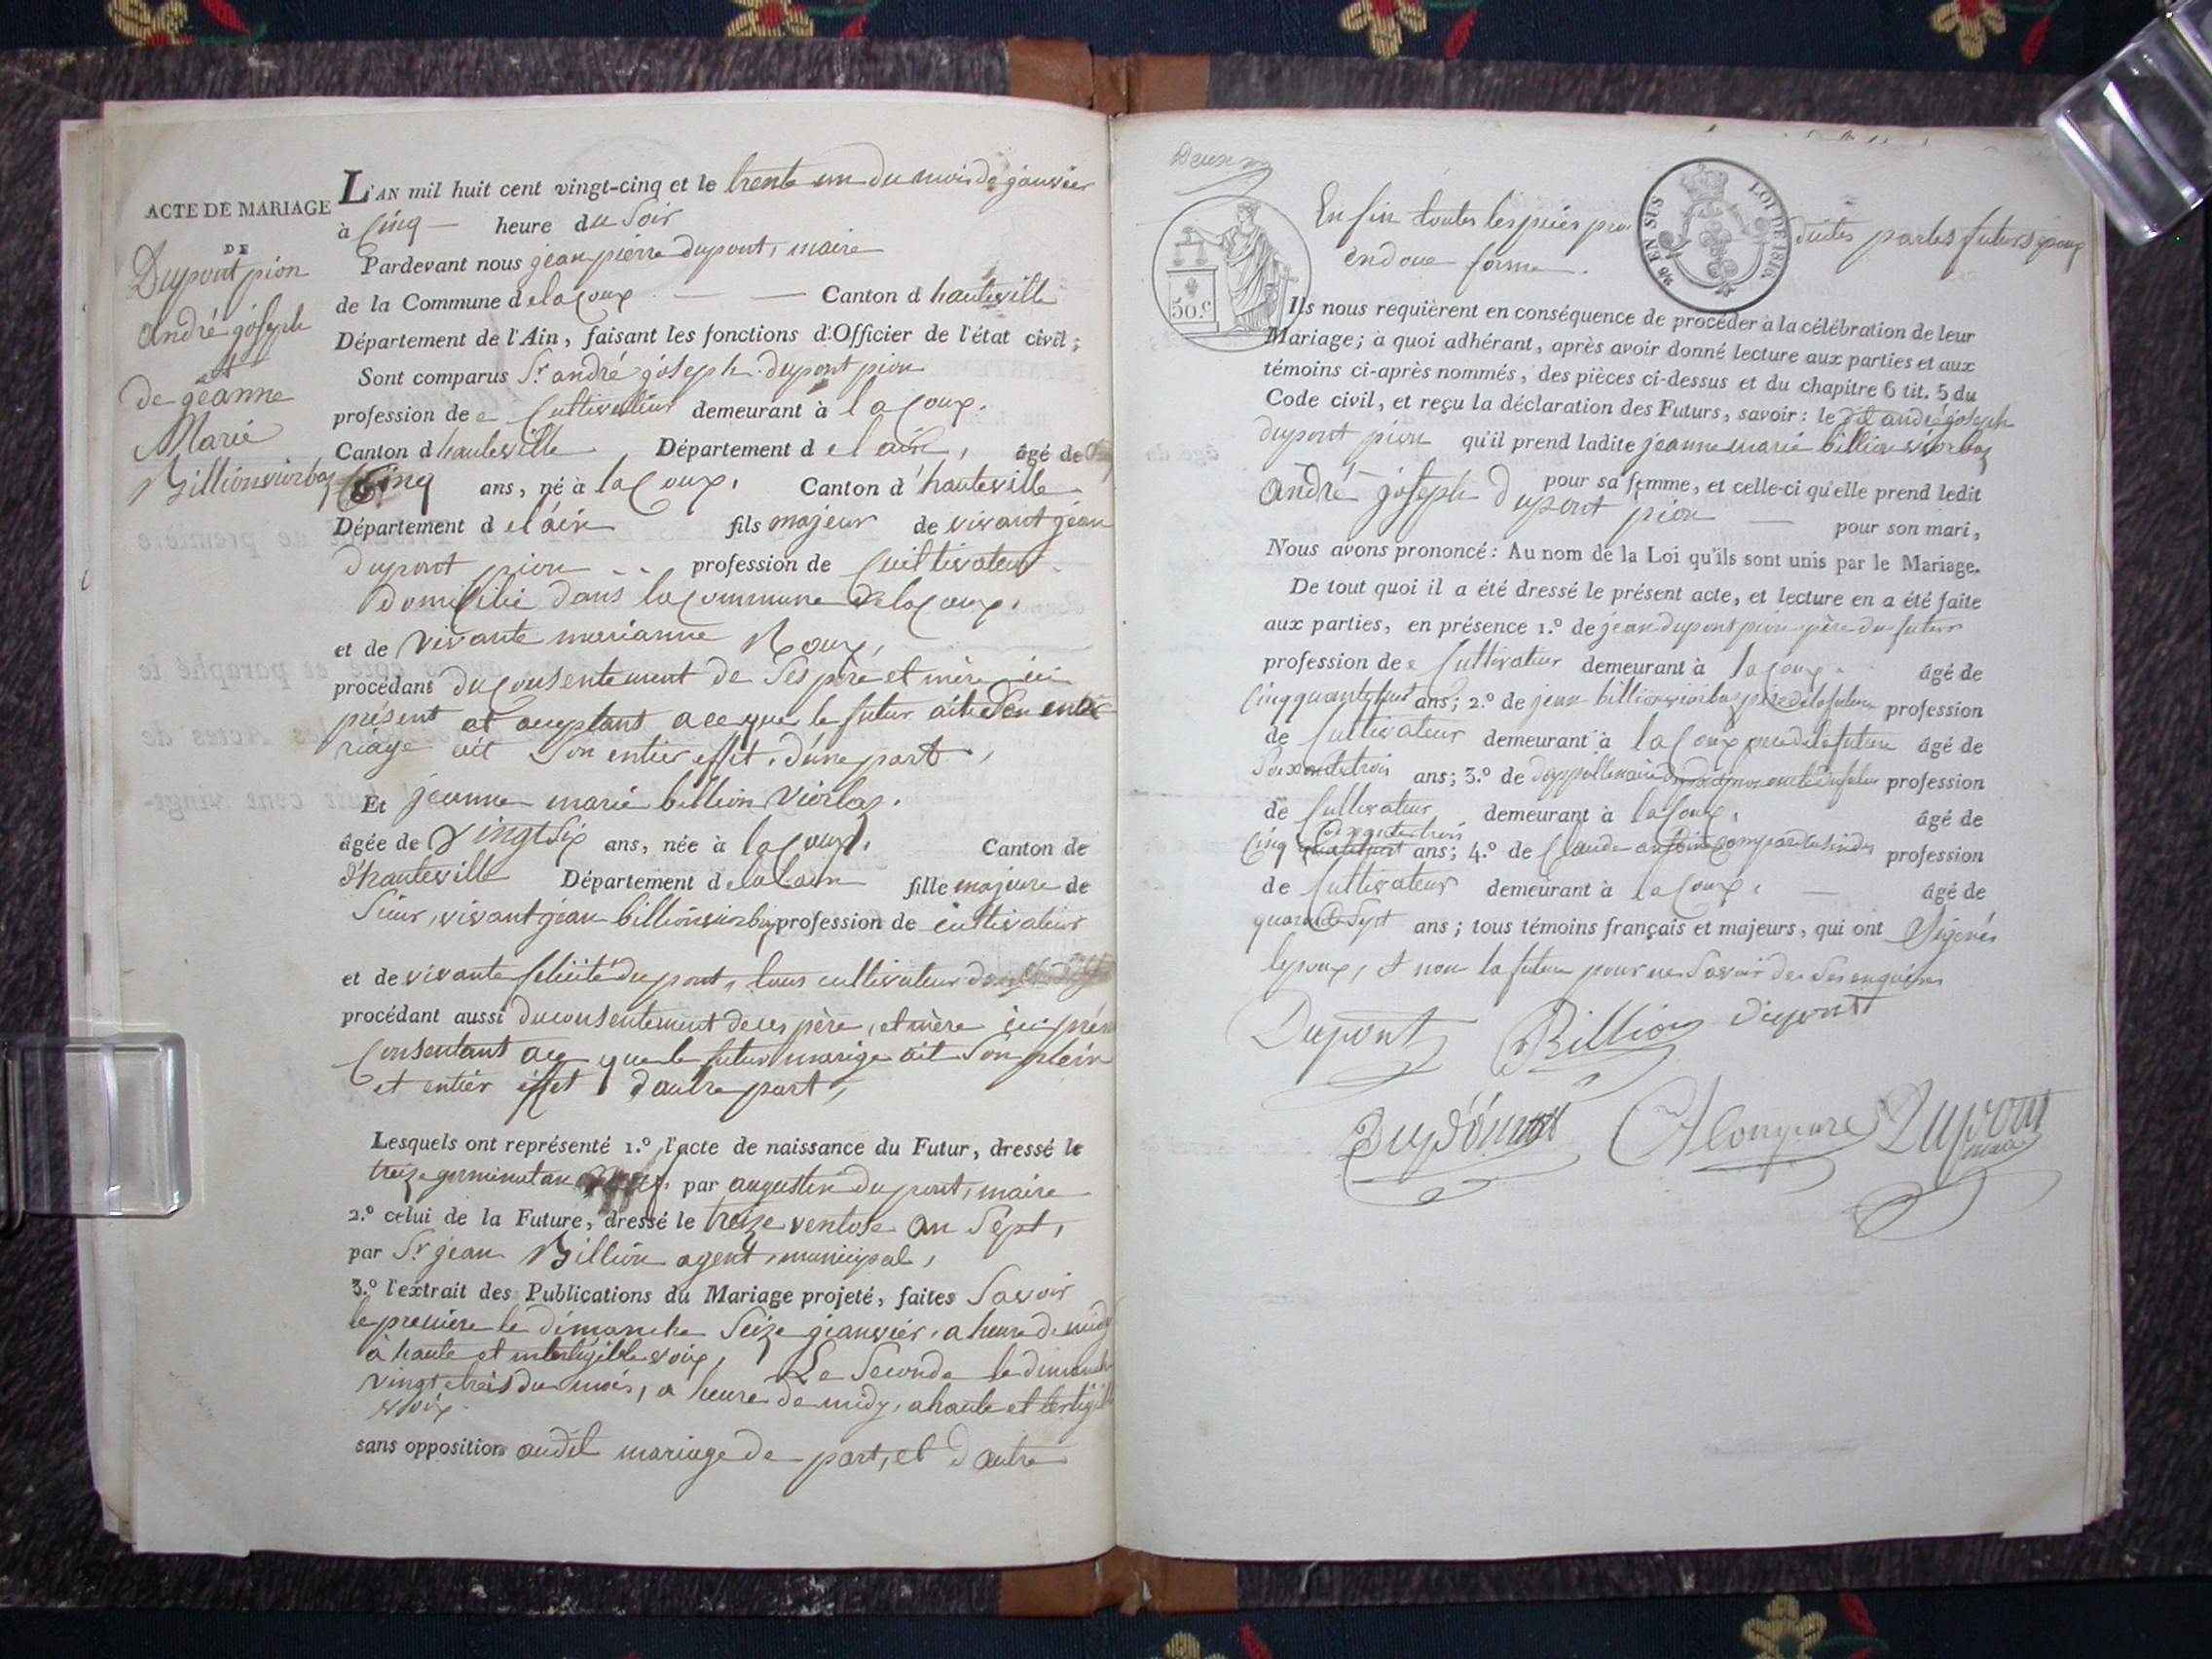 ACTE DE MARIAGE
DE
Dupont pion
andré góseph
et
de géanne
Marie
Billionviorbaz
L'AN mil huit cent vingt-cinq et le trente un du mois de gánvier
à Cinq heure du Soir
Pardevant nous géan pierre dupont, maire
de la Commune de lacoux Canton d hauteville
Département de l'Ain, faisant les fonctions d'Officier de l'état civil;
Sont comparus Sr. andré góseph dupont pion
profession de Cultivateur demeurant à lacoux.
Canton d hauteville Département d el ain, âgé de
Cinq ans, né à lacoux. Canton d'hauteville
Département d el ain fils majeur de vivant géan
dupont pion profession de Cultivateur
domicilié dans la commune de lacoux.
et de vivante marianne Roux,
procédant du consentement de ses père et mère ici
présent et acceptant a ce que le futur
riage ait son entier effet. d'une part,
Et jeanne marie billion viorbaz.
âgée de vingt Six ans, née à lacoux. Canton de
d'hauteville Département de lain fille majeure de
Sieur, vivant géan billionviorbaz profession de cultivateur
et de vivante félicité dupont, tous cultivateur
procédant aussi du consentement de ces père, et mère ici
Consentant a ce que le futur marige ait Son plein
et entier effet d'autre part,
Lesquels ont représenté 1.º l'acte de naissance du Futur, dressé le
treize germinal an par augustin dupont, maire
2.º celui de la Future, dressé le treize ventose an Sept,
par Sr. géan Billion agent, municipal,
3.º l'extrait des Publications du Mariage projeté, faites Savoir
la première le dimanche Seize gianvier, a heure de midy
à haute et inteligible voix, La Seconde le dimanche
vingt trois du mois, a heure de midy, a haute et
voix.
sans opposition audit mariage de part, et d'autre
Enfin toutes les pièces produites par les futurs époux
en doue forme.
50.c
96 EN SUS
LOI DE 1816.
Ils nous requièrent en conséquence de procéder à la célébration de leur
Mariage; à quoi adhérant, après avoir donné lecture aux parties et aux
témoins ci-après nommés, des pièces ci-dessus et du chapitre 6 tit. 5 du
Code civil, et reçu la déclaration des Futurs, savoir: le dit andré góseph
dupont pion qu'il prend ladite jeanne marie billion viorbaz
pour sa femme, et celle-ci qu'elle prend ledit
André góseph dupont pion pour son mari,
Nous avons prononcé: Au nom de la Loi qu'ils sont unis par le Mariage.
De tout quoi il a été dressé le présent acte, et lecture en a été faite
aux parties, en présence 1.º de jean dupont pion père du futur
profession de Cultivateur demeurant à lacoux âgé de
ans; 2.º de jean billionviorbaz père de la future profession
de Cultivateur demeurant à lacoux père de la future âgé de
Soixante trois ans; 3.º de profession
de Cultivateur demeurant à lacoux. âgé de
Cinquante trois
ans; 4.º de Claude antoine profession
de Cultivateur demeurant à lacoux. âgé de
quarante Sept ans; tous témoins français et majeurs, qui ont Signés
lepoux, et non la future pour ne Savoir de
Dupont Billion Dupont
Dupont Dupont
maire